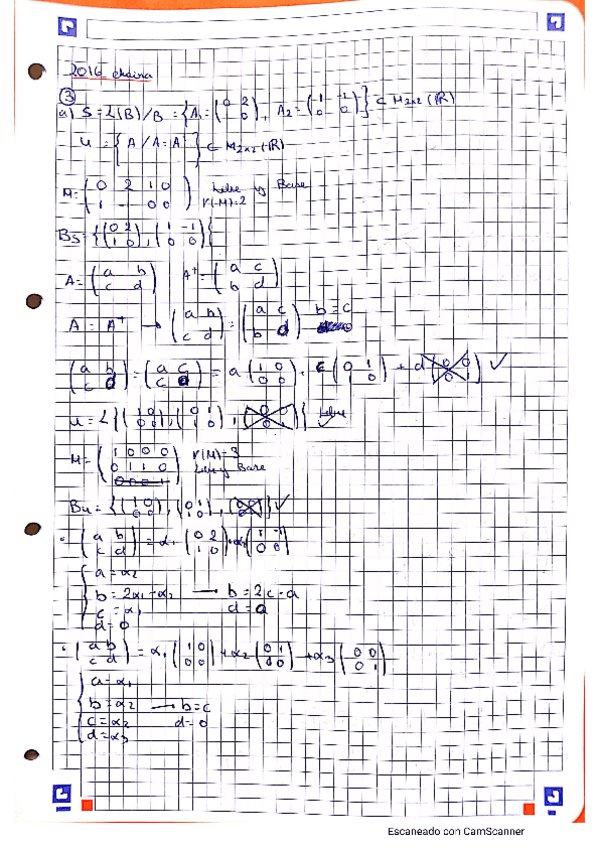 2016 ekaina
③
a) S = L(B) / B = {A₁ = (0 2; 1 0), A₂ = (1 -1; 0 0)} ⊂ M₂ₓ₂(ℝ)
U = {A / A = Aᵗ} ⊂ M₂ₓ₂(ℝ)
M = (0 2 1 0; 1 -1 0 0) Base
r(M)=2
Bs = {(0 2; 1 0), (1 -1; 0 0)}
A = (a b; c d) Aᵗ = (a c; b d)
A = Aᵗ → (a b; c d) = (a c; b d) b = c
(a b; c d) = (a c; c d) = a (1 0; 0 0) + c (0 1; 1 0) + d (0 0; 0 1) ✓
U = L{(1 0; 0 0), (0 1; 1 0), (0 0; 0 1)}
M = (1 0 0 0; 0 1 1 0; 0 0 0 1) r(M)=3
Base
Bu = {(1 0; 0 0), (0 1; 1 0), (0 0; 0 1)} ✓
(a b; c d) = α₁ (0 2; 1 0) + α₂ (1 -1; 0 0)
a = α₂
b = 2α₁ - α₂ → b = 2c - a
c = α₁ d = 0
d = 0
(a b; c d) = α₁ (1 0; 0 0) + α₂ (0 1; 1 0) + α₃ (0 0; 0 1)
a = α₁
b = α₂ → b = c
c = α₂ d = 0
d = α₃
Escaneado con CamScanner